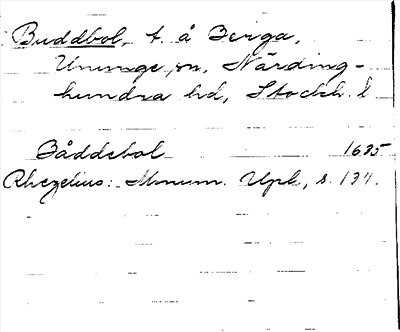 Buddbol, t. å Berga,
Ununge sn, Närding-
hundra hd, Stockh. l
Båddebol 1635
Rhezelius: Monum. Upl., s. 134.